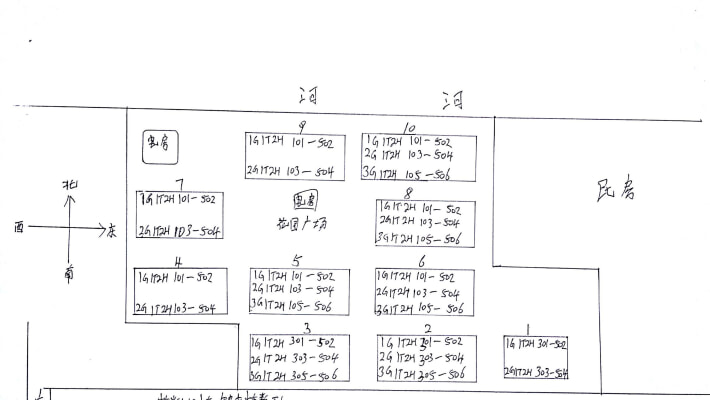 河 河
9
1G1T2H 101-502
2G1T2H 103-504
10
1G1T2H 101-502
2G1T2H 103-504
3G1T2H 105-506
7
1G1T2H 101-502
2G1T2H 103-504
配房
花园广场
8
1G1T2H 101-502
2G1T2H 103-504
3G1T2H 105-506
民房
北
西 东
南
4
1G1T2H 101-502
2G1T2H 103-504
5
1G1T2H 101-502
2G1T2H 103-504
3G1T2H 105-506
6
1G1T2H 101-502
2G1T2H 103-504
3G1T2H 105-506
3
1G1T2H 301-502
2G1T2H 303-504
3G1T2H 305-506
2
1G1T2H 301-502
2G1T2H 303-504
3G1T2H 305-506
1
1G1T2H 301-502
2G1T2H 303-504